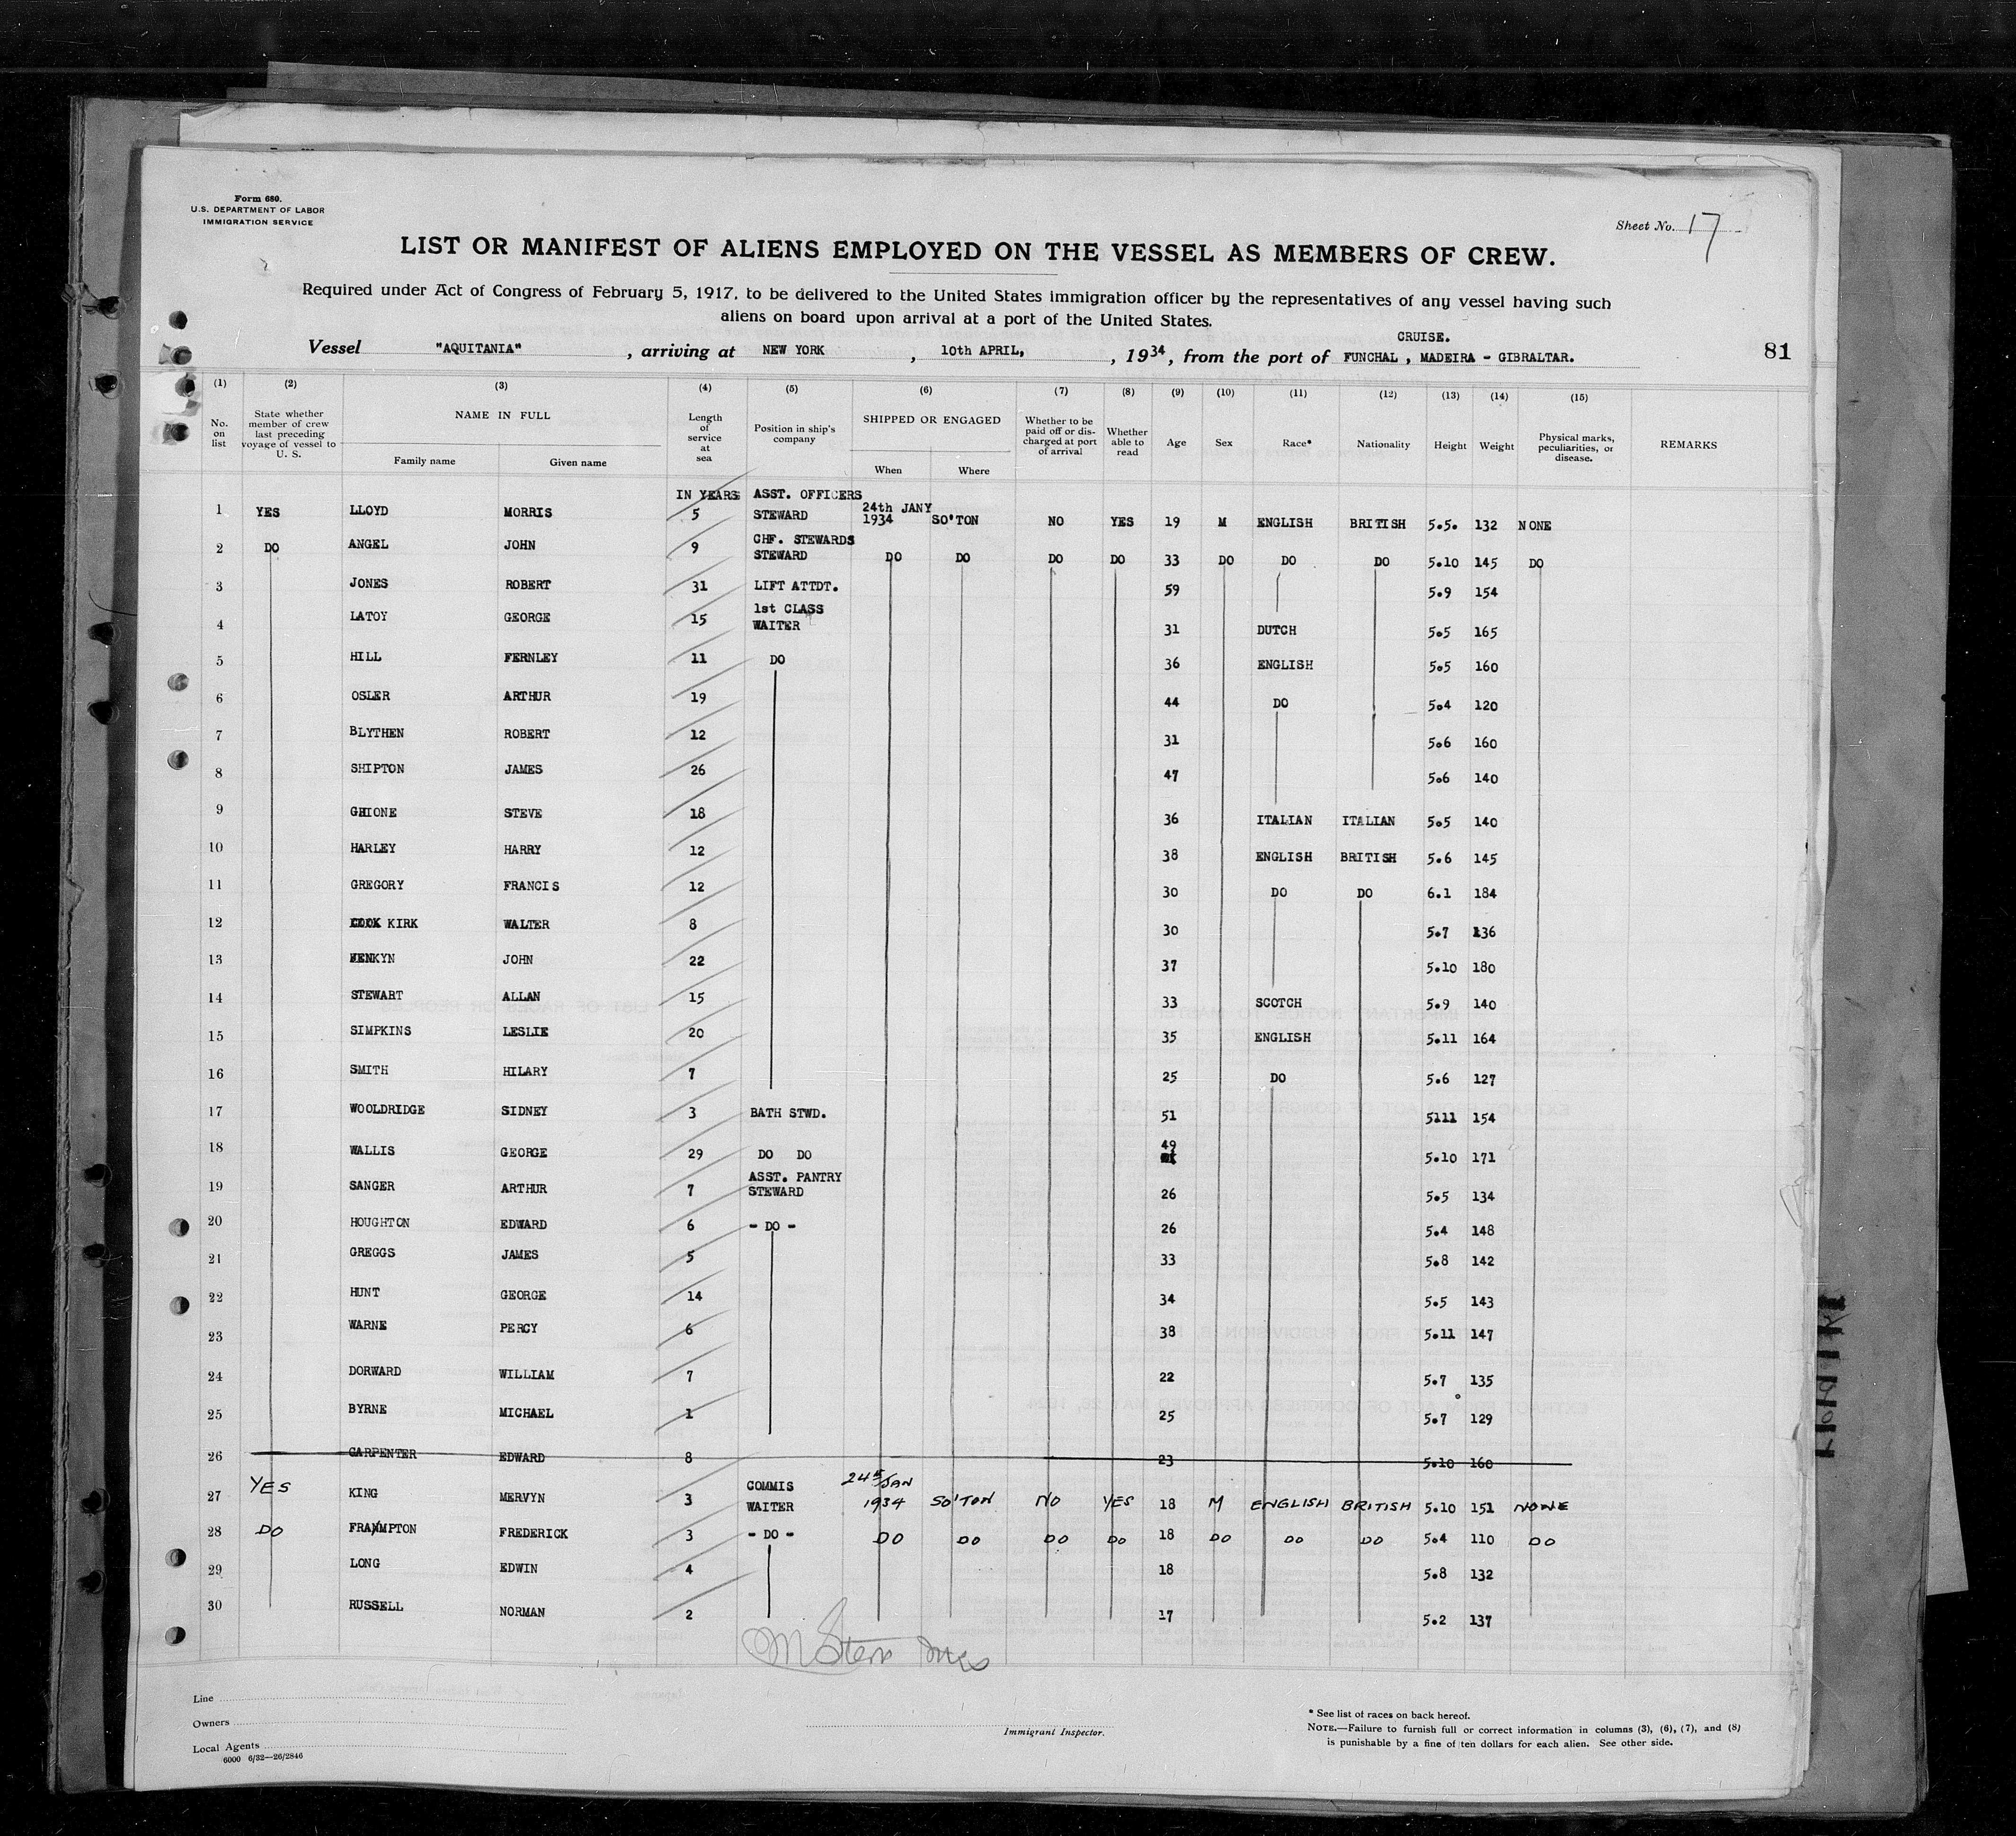 Form 680.
U.S. DEPARTMENT OF LABOR
IMMIGRATION SERVICE
Sheet No. 17
LIST OR MANIFEST OF ALIENS EMPLOYED ON THE VESSEL AS MEMBERS OF CREW.
Required under Act of Congress of February 5, 1917, to be delivered to the United States immigration officer by the representatives of any vessel having such
aliens on board upon arrival at a port of the United States.
CRUISE.
Vessel "AQUITANIA" , arriving at NEW YORK , 10th APRIL, , 1934, from the port of FUNCHAL , MADEIRA - GIBRALTAR.
81
(1) (2) (3) (4) (5) (6) (7) (8) (9) (10) (11) (12) (13) (14) (15)
No. on list State whether member of crew last preceding voyage of vessel to U. S. NAME IN FULL Length of service at sea Position in ship's company SHIPPED OR ENGAGED Whether to be paid off or discharged at port of arrival Whether able to read Age Sex Race* Nationality Height Weight Physical marks, peculiarities, or disease. REMARKS
Family name Given name When Where
IN YEARS ASST. OFFICERS
1 YES LLOYD MORRIS 5 STEWARD 24th JANY 1934 SO'TON NO YES 19 M ENGLISH BRITISH 5.5. 132 NONE
2 DO ANGEL JOHN 9 CHF. STEWARDS STEWARD DO DO DO DO 33 DO DO DO 5.10 145 DO
3 JONES ROBERT 31 LIFT ATTDT. 59 5.9 154
4 LATOY GEORGE 15 1st CLASS WAITER 31 DUTCH 5.5 165
5 HILL FERNLEY 11 DO 36 ENGLISH 5.5 160
6 OSLER ARTHUR 19 44 DO 5.4 120
7 BLYTHEN ROBERT 12 31 5.6 160
8 SHIPTON JAMES 26 47 5.6 140
9 GHIONE STEVE 18 36 ITALIAN ITALIAN 5.5 140
10 HARLEY HARRY 12 38 ENGLISH BRITISH 5.6 145
11 GREGORY FRANCIS 12 30 DO DO 6.1 184
12 KIRK WALTER 8 30 5.7 136
13 JENKYN JOHN 22 37 5.10 180
14 STEWART ALLAN 15 33 SCOTCH 5.9 140
15 SIMPKINS LESLIE 20 35 ENGLISH 5.11 164
16 SMITH HILARY 7 25 DO 5.6 127
17 WOOLDRIDGE SIDNEY 3 BATH STWD. 51 5111 154
18 WALLIS GEORGE 29 DO DO 49 5.10 171
19 SANGER ARTHUR 7 ASST. PANTRY STEWARD 26 5.5 134
20 HOUGHTON EDWARD 6 - DO - 26 5.4 148
21 GREGGS JAMES 5 33 5.8 142
22 HUNT GEORGE 14 34 5.5 143
23 WARNE PERCY 6 38 5.11 147
24 DORWARD WILLIAM 7 22 5.7 135
25 BYRNE MICHAEL 1 25 5.7 129
26 CARPENTER EDWARD 8 23 5.10 160
27 YES KING MERVYN 3 COMMIS WAITER 24th JAN 1934 SO'TON NO YES 18 M ENGLISH BRITISH 5.10 151 NONE
28 DO FRAMPTON FREDERICK 3 - DO - DO DO DO DO 18 DO DO DO 5.4 110 DO
29 LONG EDWIN 4 18 5.8 132
30 RUSSELL NORMAN 2 17 5.2 137
Line
Owners
Local Agents
6000 6/32—26/2846
Immigrant Inspector.
* See list of races on back hereof.
NOTE.—Failure to furnish full or correct information in columns (3), (6), (7), and (8)
is punishable by a fine of ten dollars for each alien. See other side.